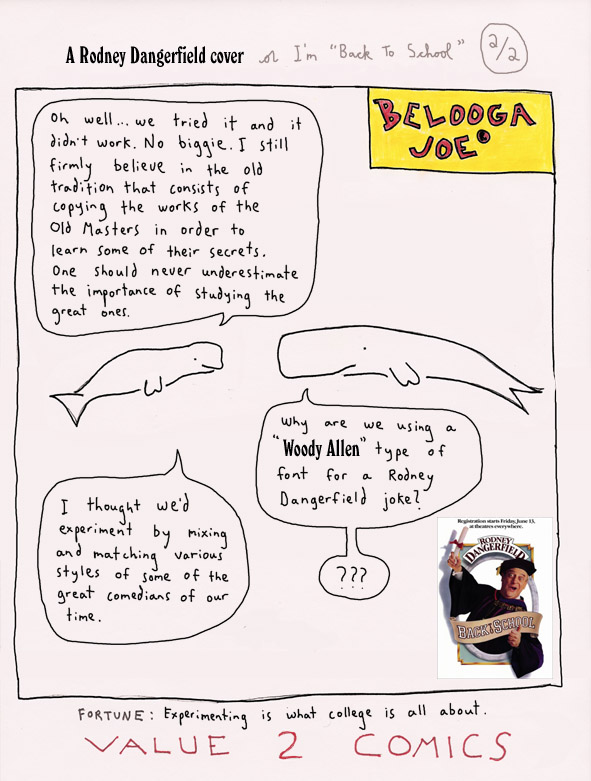 A Rodney Dangerfield cover or I'm "Back To School" 2/2
BELOOGA
JOE
Oh well... we tried it and it
didn't work. No biggie. I still
firmly believe in the old
tradition that consists of
copying the works of the
Old Masters in order to
learn some of their secrets.
One should never underestimate
the importance of studying the
great ones.
Why are we using a
"Woody Allen" type of
font for a Rodney
Dangerfield joke?
???
I thought we'd
experiment by mixing
and matching various
styles of some of the
great comedians of our
time.
Registration starts Friday, June 13,
at theatres everywhere.
RODNEY
DANGERFIELD
BACK TO SCHOOL
FORTUNE: Experimenting is what college is all about.
VALUE 2 COMICS